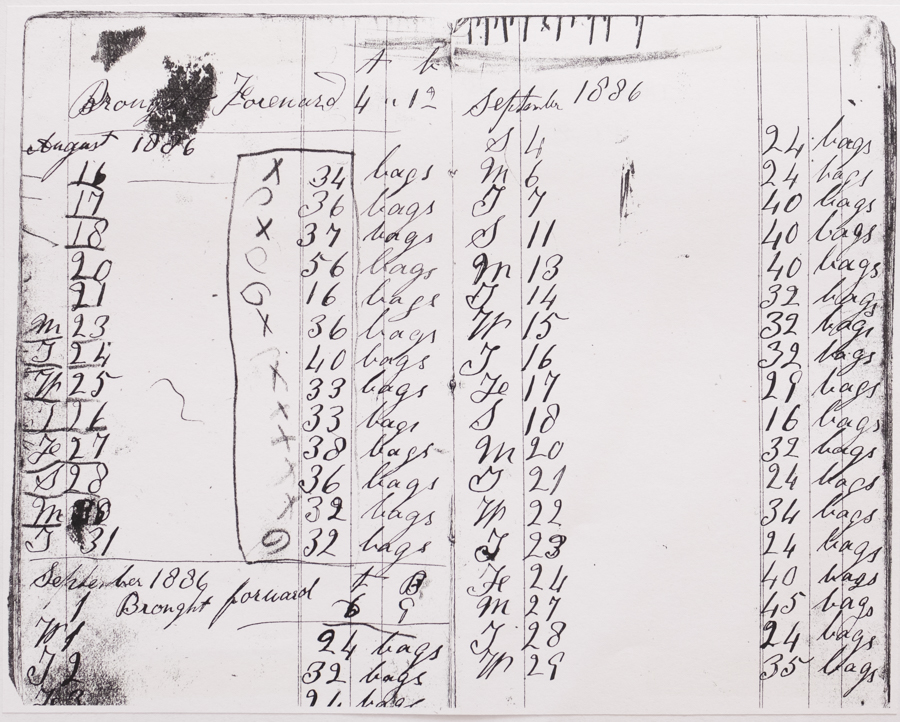 t b
Brought Forward 4 " 19
August 1886
16 x 34 bags
17 36 bags
18 x 37 bags
20 56 bags
21 16 bags
M 23 x 36 bags
T 24 40 bags
W 25 x 33 bags
T 26 x 33 bags
Fe 27 x 38 bags
S 28 x 36 bags
M x 32 bags
T 31 32 bags
September 1886 t B
1 Brought forward 6 9
W 1 24 bags
T 2 32 bags
bags
September 1886
S 4 24 bags
M 6 24 bags
T 7 40 bags
S 11 40 bags
M 13 40 bags
T 14 32 bags
W 15 32 bags
T 16 32 bags
Fe 17 29 bags
S 18 16 bags
M 20 32 bags
T 21 24 bags
W 22 34 bags
T 23 24 bags
Fe 24 40 bags
M 27 45 bags
T 28 24 bags
W 29 35 bags